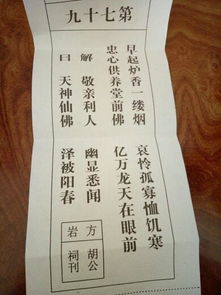 第七十九
早起炉香一缕烟
哀怜孤寡恤饥寒
忠心供养堂前佛
亿万龙天在眼前
解曰
敬亲利人
幽显悉闻
天神仙佛
泽被阳春
方岩
胡公祠刊